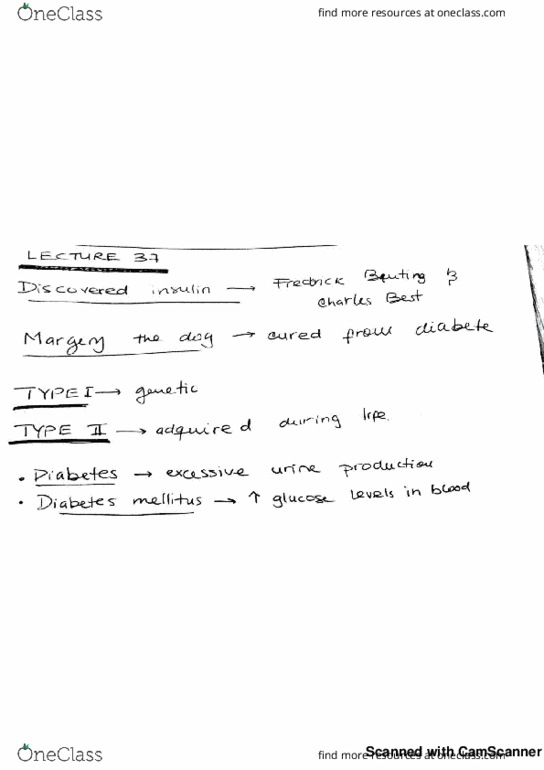 OneClass
find more resources at oneclass.com
LECTURE 37
Discovered insulin → Fredrick Banting &
Charles Best
Margery the dog → cured from diabete
TYPE I → genetic
TYPE II → adquired during life
• Diabetes → excessive urine production
• Diabetes mellitus → ↑ glucose levels in blood
OneClass
find more resources at oneclass.com
Scanned with CamScanner